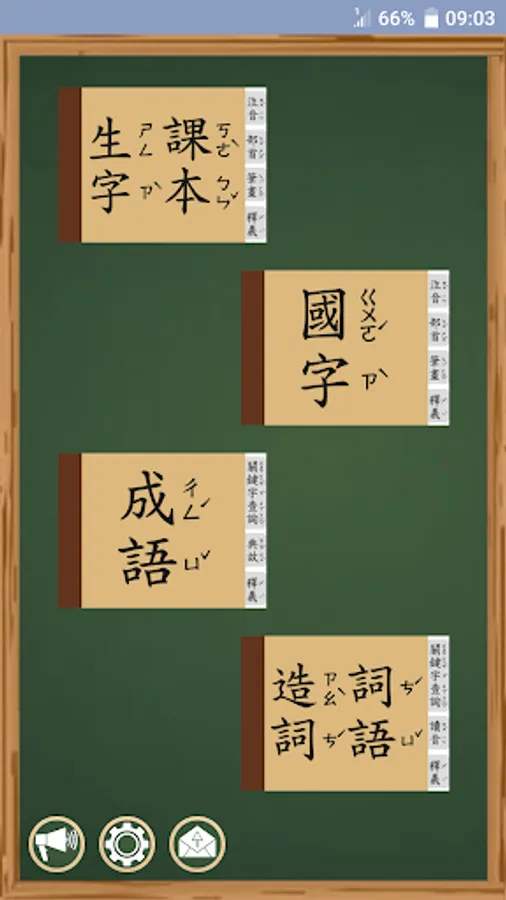 66% 09:03
課本 ㄎㄜˋ ㄅㄣˇ
生字 ㄕㄥ ㄗˋ
注音
部首
筆畫
釋義
國字 ㄍㄨㄛˊ ㄗˋ
注音
部首
筆畫
釋義
成語 ㄔㄥˊ ㄩˇ
關鍵字查詢
典故
釋義
詞語 ㄘˊ ㄩˇ
造詞 ㄗㄠˋ ㄘˊ
關鍵字查詢
讀音
釋義